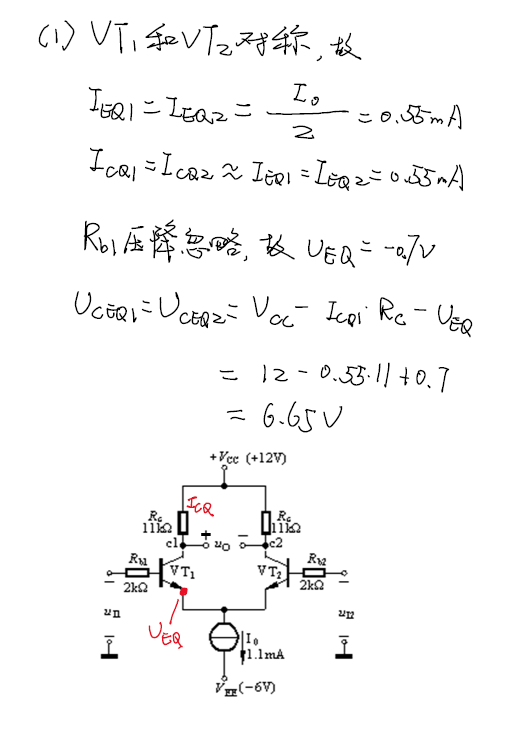 (1) VT₁和VT₂对称,故
I_EQ1 = I_EQ2 = I₀/2 = 0.55mA
I_CQ1 = I_CQ2 ≈ I_EQ1 = I_EQ2 = 0.55mA
R_b1压降忽略,故 U_EQ = -0.7V
U_CEQ1 = U_CEQ2 = V_CC - I_CQ1·R_C - U_EQ
= 12 - 0.55·11 + 0.7
= 6.65V
+V_CC (+12V)
I_CQ
R_c R_c
11kΩ 11kΩ
c1 + u_O − c2
R_b1 VT₁ VT₂ R_b2
2kΩ 2kΩ
+ +
u_I1 u_I2
U_EQ I₀
− −
1.1mA
V_EE(-6V)